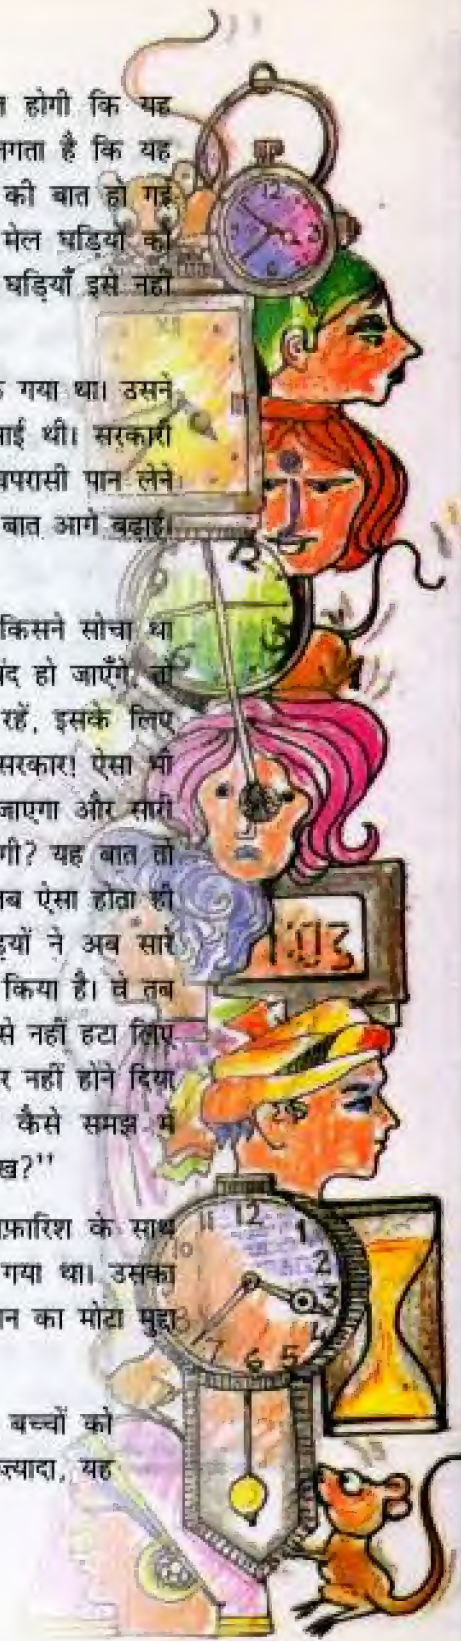 होगी कि यह
लगता है कि यह
की बात हो गई
मेल घड़ियों को
घड़ियाँ इसे नहीं
गया था। उसने
सरकारी
चपरासी पान लेने
बात आगे बढ़ाई।
किसने सोचा था
बंद हो जाएँगे, तो
रहें, इसके लिए
सरकार! ऐसा भी
जाएगा और सारी
यह बात तो
ऐसा होता ही
ने अब सारे
किया है। वे तब
से नहीं हटा लिए
नहीं होने दिया
कैसे समझ में
के साथ
गया था। उसका
का मोटा मुद्दा
बच्चों को
ज़्यादा, यह
12
3
6
12
1:03
11 12 1
10 2
3
8 4
7 6 5